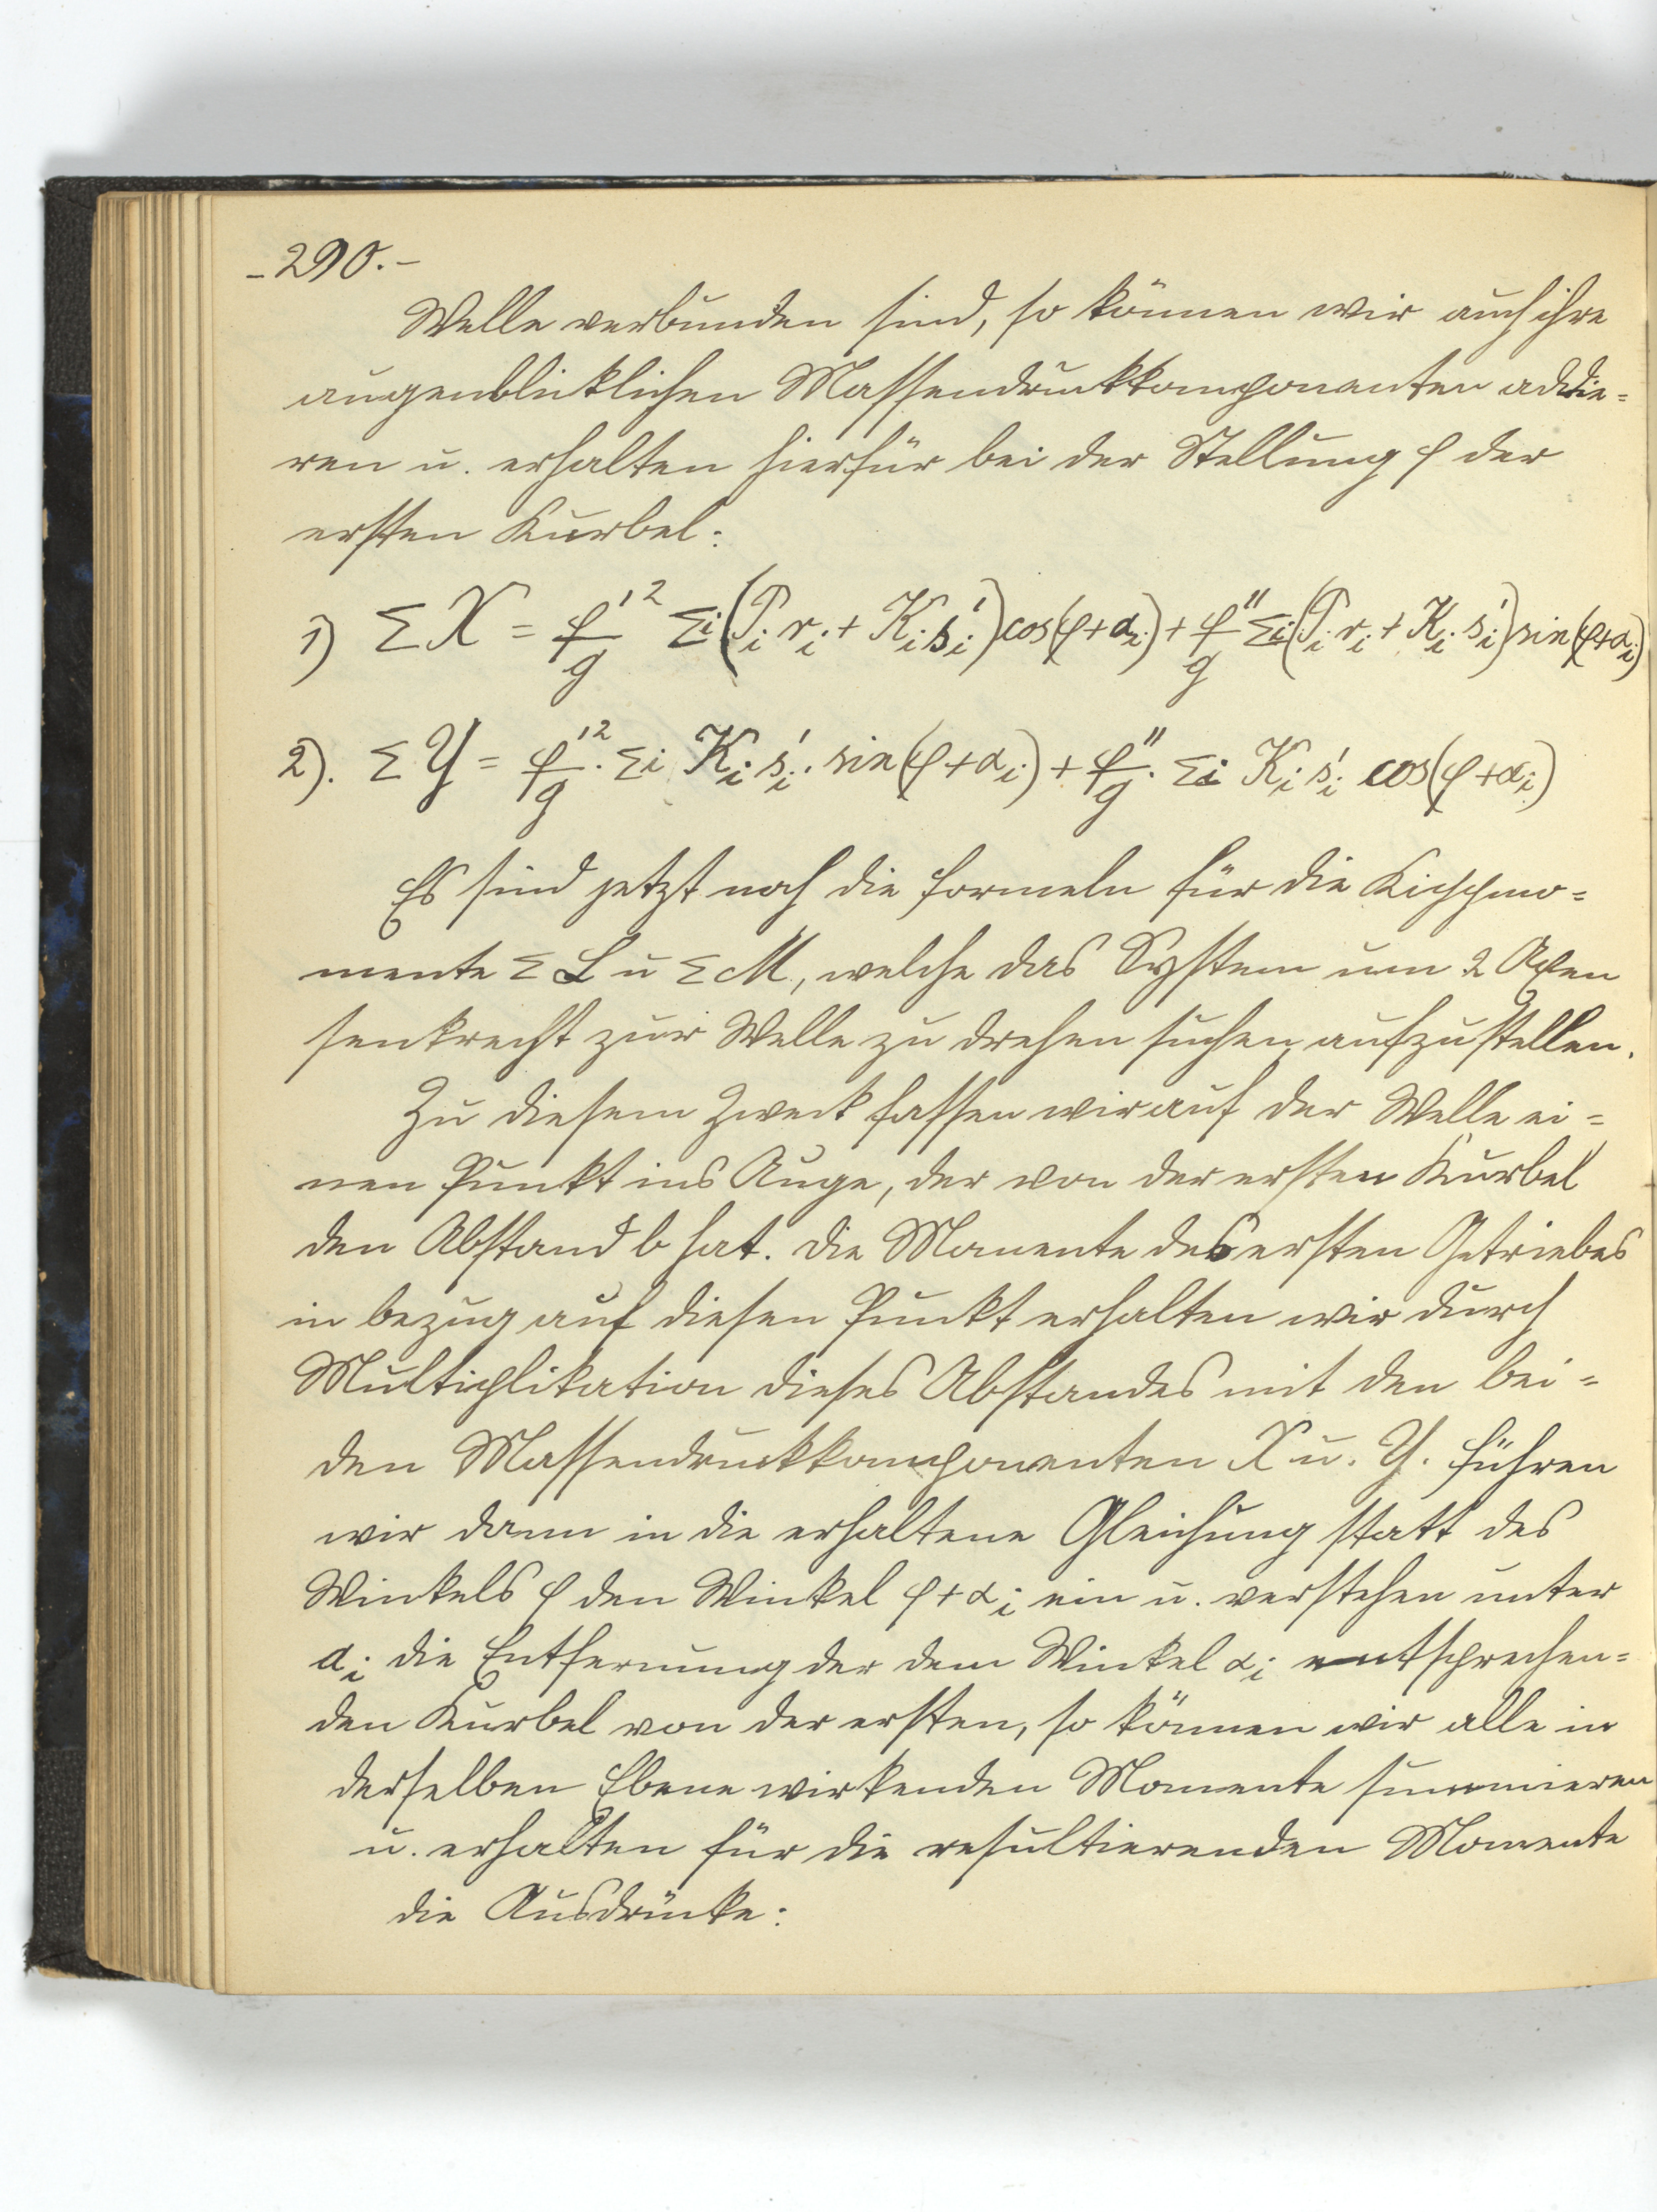 - 290. -
Welle verbunden sind, so können wir auch ihre
augenblicklichen Massendruckkomponenten addie=
ren u. erhalten hierfür bei der Stellung φ der
ersten Kurbel:
1) Σ X = φ'²/g Σi (Pi ri + Ki si') cos(φ+αi) + φ''/g Σi (Pi ri + Ki si') sin(φ+αi)
2). Σ Y = φ'²/g · Σi Ki si' · sin(φ+αi) + φ''/g · Σi Ki si' cos(φ+αi)
Es sind jetzt noch die Formeln für die Kippmo=
mente Σ L u Σ M, welche das System um 2 Axen
senkrecht zur Welle zu drehen suchen, aufzustellen.
Zu diesem Zweck fassen wir auf der Welle ei=
nen Punkt ins Auge, der von der ersten Kurbel
den Abstand b hat. Die Momente des ersten Getriebes
in bezug auf diesen Punkt erhalten wir durch
Multiplikation dieses Abstandes mit den bei=
den Massendruckkomponenten X u. Y. Führen
wir dann in die erhaltene Gleichung statt des
Winkels φ den Winkel φ+αi ein u. verstehen unter
ai die Entfernung der dem Winkel αi entsprechen=
den Kurbel von der ersten, so können wir alle in
derselben Ebene wirkenden Momente summieren
u. erhalten für die resultierenden Momente
die Ausdrücke: